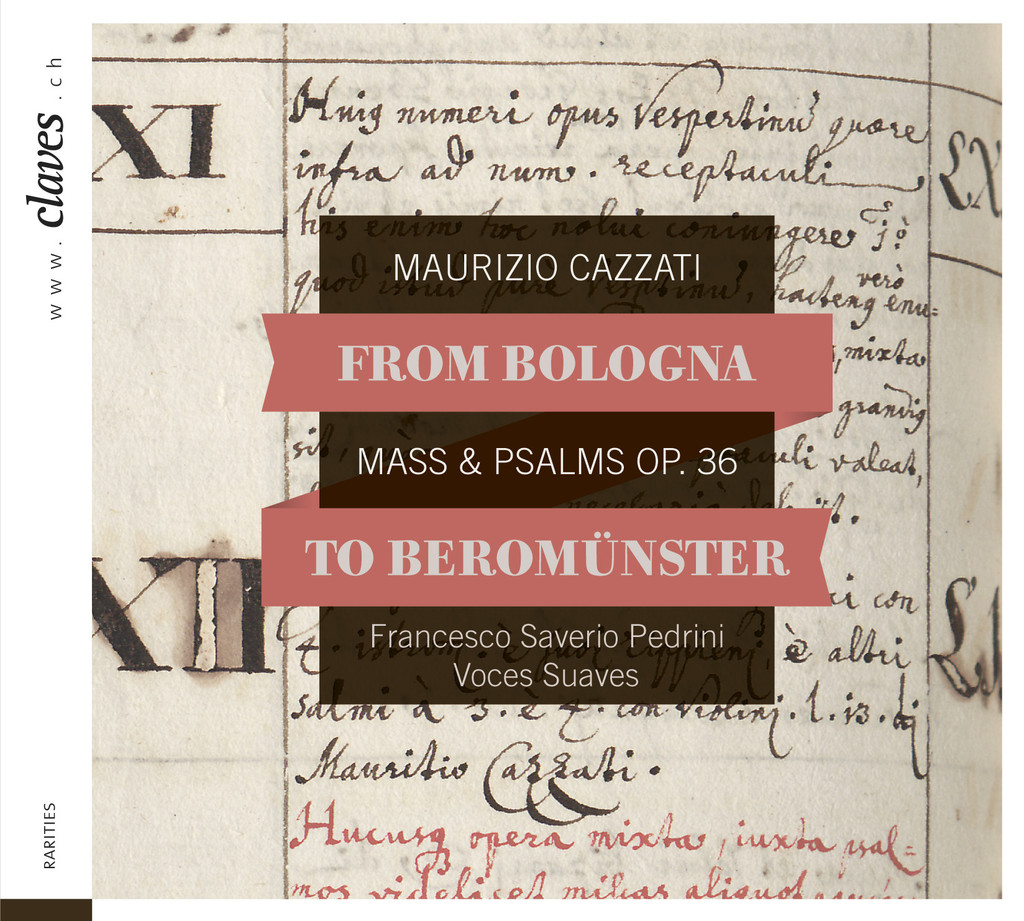 www.claves.ch
RARITIES
XI
Huig numeri opus Vespertinū quære
infra ad num. receptaculi
his enim hoc nolui coniungere
quod istud pure Vesptinū, hacteng enu=
verò
mixta
MAURIZIO CAZZATI
FROM BOLOGNA
MASS & PSALMS OP. 36
TO BEROMÜNSTER
Francesco Saverio Pedrini
Voces Suaves
sit,
valeat,
XII
con
è altri
salmi à 3. è 4. con Violinj. l. 13.
Mauritio Cazzati.
Hucusq opera mixta, iuxta psal=
mos videlicet missas aliquot